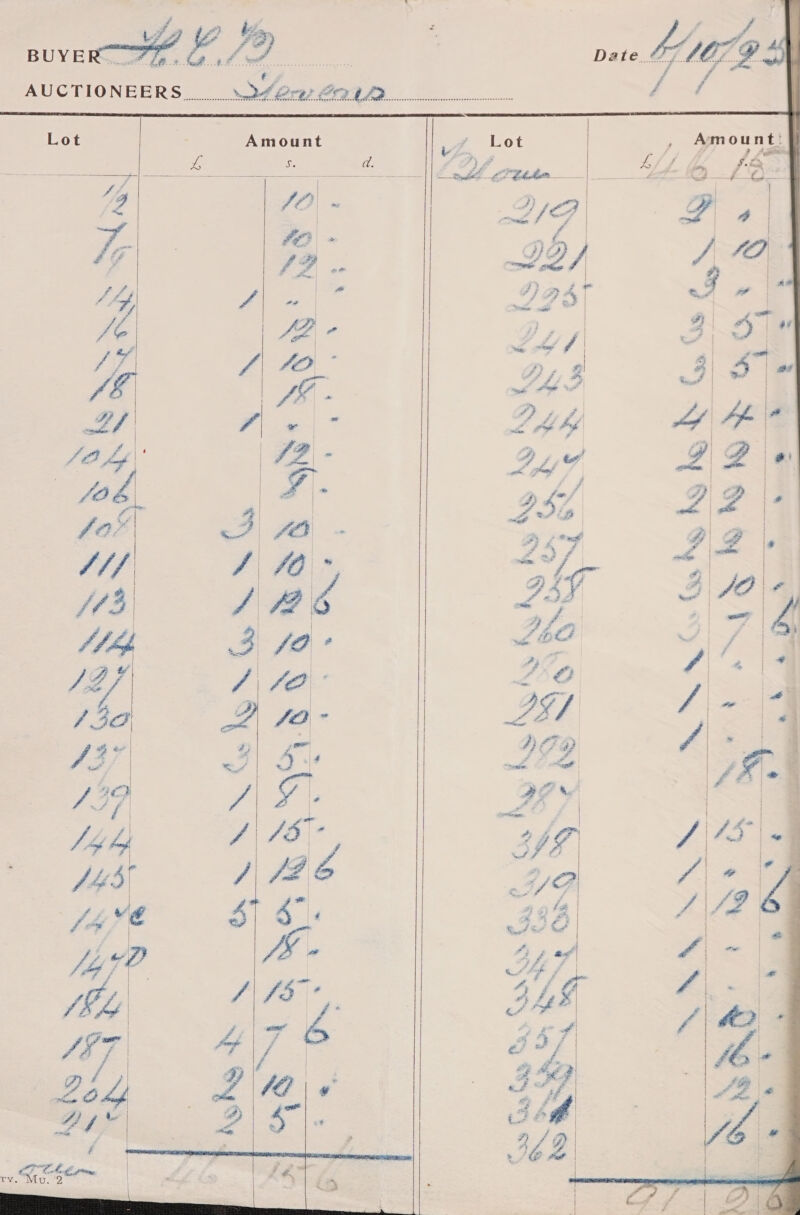 BUYER H.C.B Date 6/10/25
AUCTIONEERS Stevens
Lot Amount
£ s. d.
1/2 10 -
7 10 -
9 12 "
14 1 " "
16 12 -
17 1 10 -
18 18 -
21 1 " -
104 12 -
106 8 -
108 3 10 -
111 1 10 -
113 1 12 6
114 3 10 -
127 1 10 -
130 2 10 -
137 3 5 -
139 1 8 -
144 1 15 -
145 1 12 6
147c 5 5 -
147D 18 -
184 1 15 -
187 4 7 6
204 2 10 -
217 2 5 "
over 46 15 6
rv. Mu. 2
Lot Amount
£ s.
46 15
219 2 "
221 1 10
225 3 " "
241 3 5 "
243 3 5 "
244 4 4 "
247 2 2 "
256 2 2 -
257 2 2 -
258 3 10 -
260 3 7 6
280 1 " "
281 1 " "
282 1 - -
287 18 -
318 1 15 -
319 1 " "
333 1 12 6
347 1 - -
348 1 - -
357 1 10 -
359 16 -
361 12 -
362 16 -
91 2 6